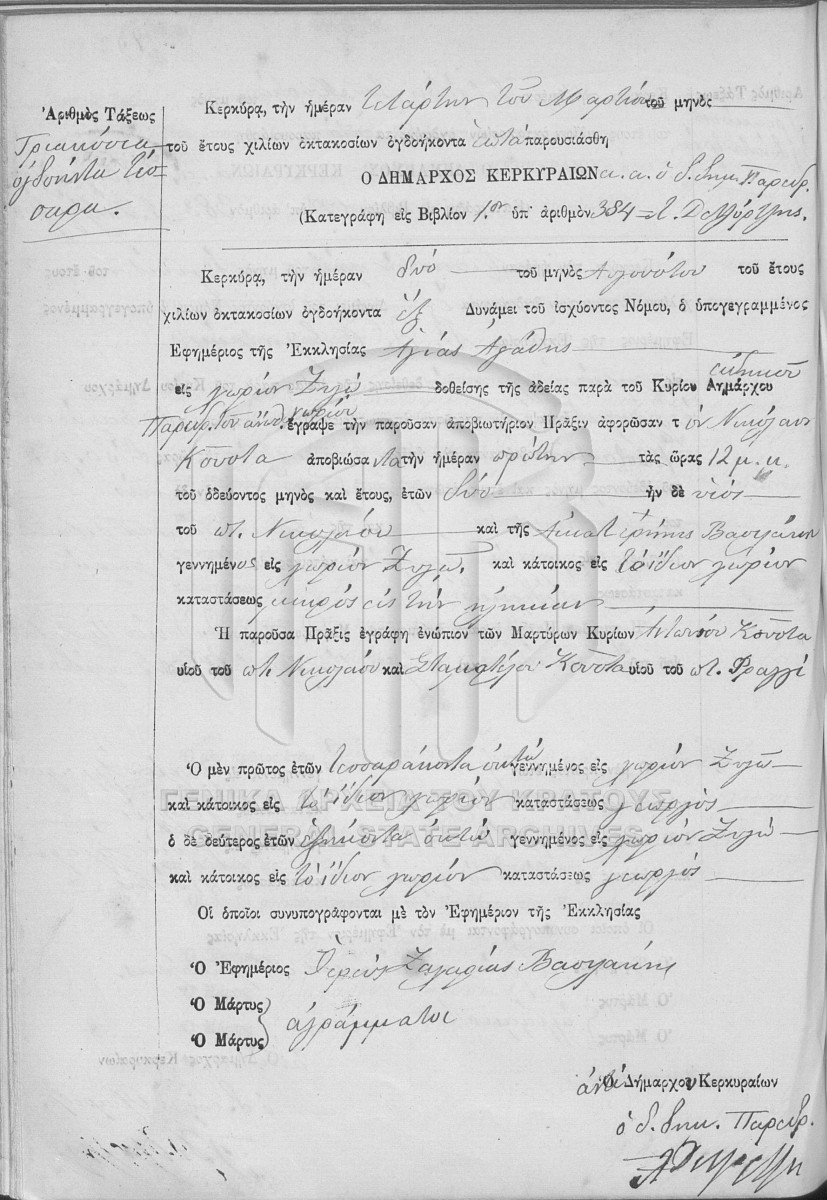 Ἀριθμὸς Τάξεως
Τριακόσια
ὀγδοήντα τέσ
σαρα.
Κερκύρα, τὴν ἡμέραν τετάρτην τοῦ Μαρτίου τοῦ μηνὸς
τοῦ ἔτους χιλίων ὀκτακοσίων ὀγδοήκοντα ἑπτὰ παρουσιάσθη
Ο ΔΗΜΑΡΧΟΣ ΚΕΡΚΥΡΑΙΩΝ α. α. ὁ δ. δημ. Παρεδρ.
(Κατεγράφη εἰς Βιβλίον 1ον ὑπ' ἀριθμὸν 384
Κερκύρα, τὴν ἡμέραν δυὸ τοῦ μηνὸς Αὐγούστου τοῦ ἔτους
χιλίων ὀκτακοσίων ὀγδοήκοντα ἕξ Δυνάμει τοῦ ἰσχύοντος Νόμου, ὁ ὑπογεγραμμένος
Ἐφημέριος τῆς Ἐκκλησίας Ἁγίας Ἀγάθης
εἰς χωρίον Ζυγὸ δοθείσης τῆς ἀδείας παρὰ τοῦ Κυρίου Δημάρχου εἰδικοῦ
Παρέδρ. τοῦ ἄνω χωρίου ἔγραψε τὴν παροῦσαν ἀποβιωτήριον Πρᾶξιν ἀφορῶσαν τ ὸν Νικόλαον
Κοῦστα ἀποβιώσα ντα τὴν ἡμέραν πρώτην τὰς ὥρας 12 μ. μ.
τοῦ ὁδεύοντος μηνὸς καὶ ἔτους, ἐτῶν δύο ἦν δὲ υἱὸς
τοῦ ποτ. Νικολάου καὶ τῆς Αἰκατερίνης Βασιλάκη
γεννημένος εἰς χωρίον Ζυγὸ. καὶ κάτοικος εἰς τὸ ἴδιον χωρίον
καταστάσεως μικρὸς εἰς τὴν ἡλικίαν
Ἡ παροῦσα Πρᾶξις ἐγράφη ἐνώπιον τῶν Μαρτύρων Κυρίων Ἀντωνίου Κοῦστα
υἱοῦ τοῦ ποτ. Νικολάου καὶ Σταματέλου Κοῦστα υἱοῦ τοῦ ποτ. Φραγγὶ
Ὁ μὲν πρῶτος ἐτῶν τεσσαράκοντα ὀκτὼ γεννημένος εἰς χωρίον Ζυγὸ
καὶ κάτοικος εἰς τὸ ἴδιον χωρίον καταστάσεως γεωργὸς
ὁ δὲ δεύτερος ἐτῶν ἑξήκοντα ὀκτὼ γεννημένος εἰς χωρίον Ζυγὸ
καὶ κάτοικος εἰς τὸ ἴδιον χωρίον καταστάσεως γεωργὸς
Οἱ ὁποῖοι συνυπογράφονται μὲ τὸν Ἐφημέριον τῆς Ἐκκλησίας
Ὁ Ἐφημέριος Ἱερεὺς Ζαχαρίας Βασιλάκης
Ὁ Μάρτυς
Ὁ Μάρτυς } ἀγράμματοι
ἀντὶ Ὁ Δήμαρχου Κερκυραίων
ὁ δ. δημ. Παρεδρ.
ΓΕΝΙΚΑ ΑΡΧΕΙΑ ΤΟΥ ΚΡΑΤΟΥΣ
GENERAL STATE ARCHIVES